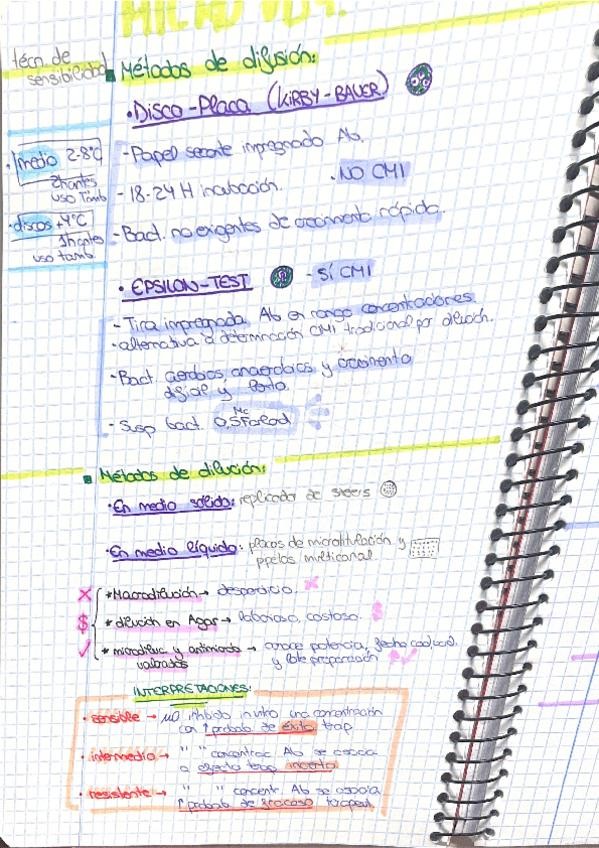 MICRO UD4.
técn. de
sensibilidad
Métodos de difusión:
• Disco-Placa (KIRBY-BAUER)
• medio 2-8ºC
2h antes
uso Tamb
• discos +4ºC
1h antes
uso tamb.
- Papel secante impregnado Ab.
- 18-24 H incubación.
• NO CMI
- Bact. no exigentes de crecimiento rápido.
• EPSILON-TEST
- SÍ CMI
- Tira impregnada Ab en rango concentraciones.
• alternativa a determinación CMI tradicional por dilución.
- Bact. aerobias anaerobias y crecimiento
difícil y lento.
- Susp bact. 0,5 Mc Farland
Métodos de dilución:
• En medio sólido: replicador de steers
• En medio líquido: placas de microtitulación y
ppetas multicanal
X * Macrodilución → desperdicio. X
$ * dilución en Agar → laborioso, costoso. $
✓ * microdiluc y antimicrob → conoce potencia, fecha cad,
validados y lote preparación
INTERPRETACIONES:
• sensible → µO inhibido in vitro una concentración
con ↑ probab de éxito terap
• intermedio → " " concentrac Ab se asocia
a efecto terap incierto
• resistente → " " concent. Ab se asocia
↑ probab de fracaso terapeut